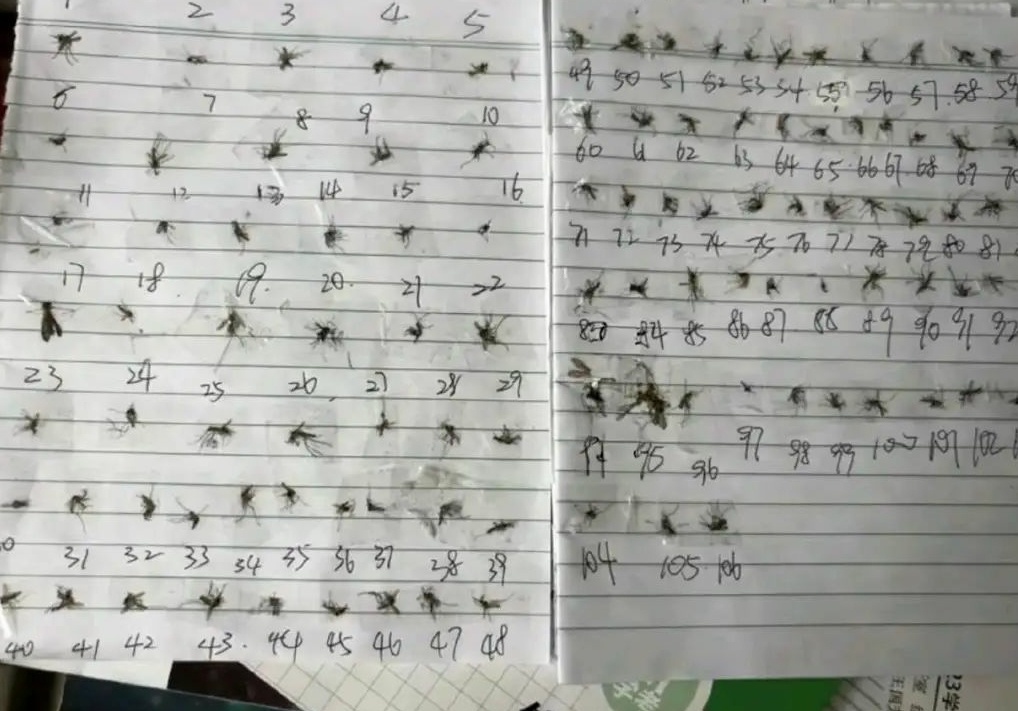 1 2 3 4 5
6 7 8 9 10
11 12 13 14 15 16
17 18 19 20 21 22
23 24 25 26 27 28 29
31 32 33 34 35 36 37 38 39
40 41 42 43 44 45 46 47 48
49 50 51 52 53 54 55 56 57 58 59
60 61 62 63 64 65 66 67 68 69 70
71 72 73 74 75 76 77 78 79 80 81
84 85 86 87 88 89 90 91 92
94 95 96 97 98 99 100 101 102
104 105 106